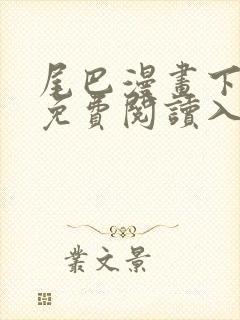 尾巴漫畫下
免費閱讀入
業文景